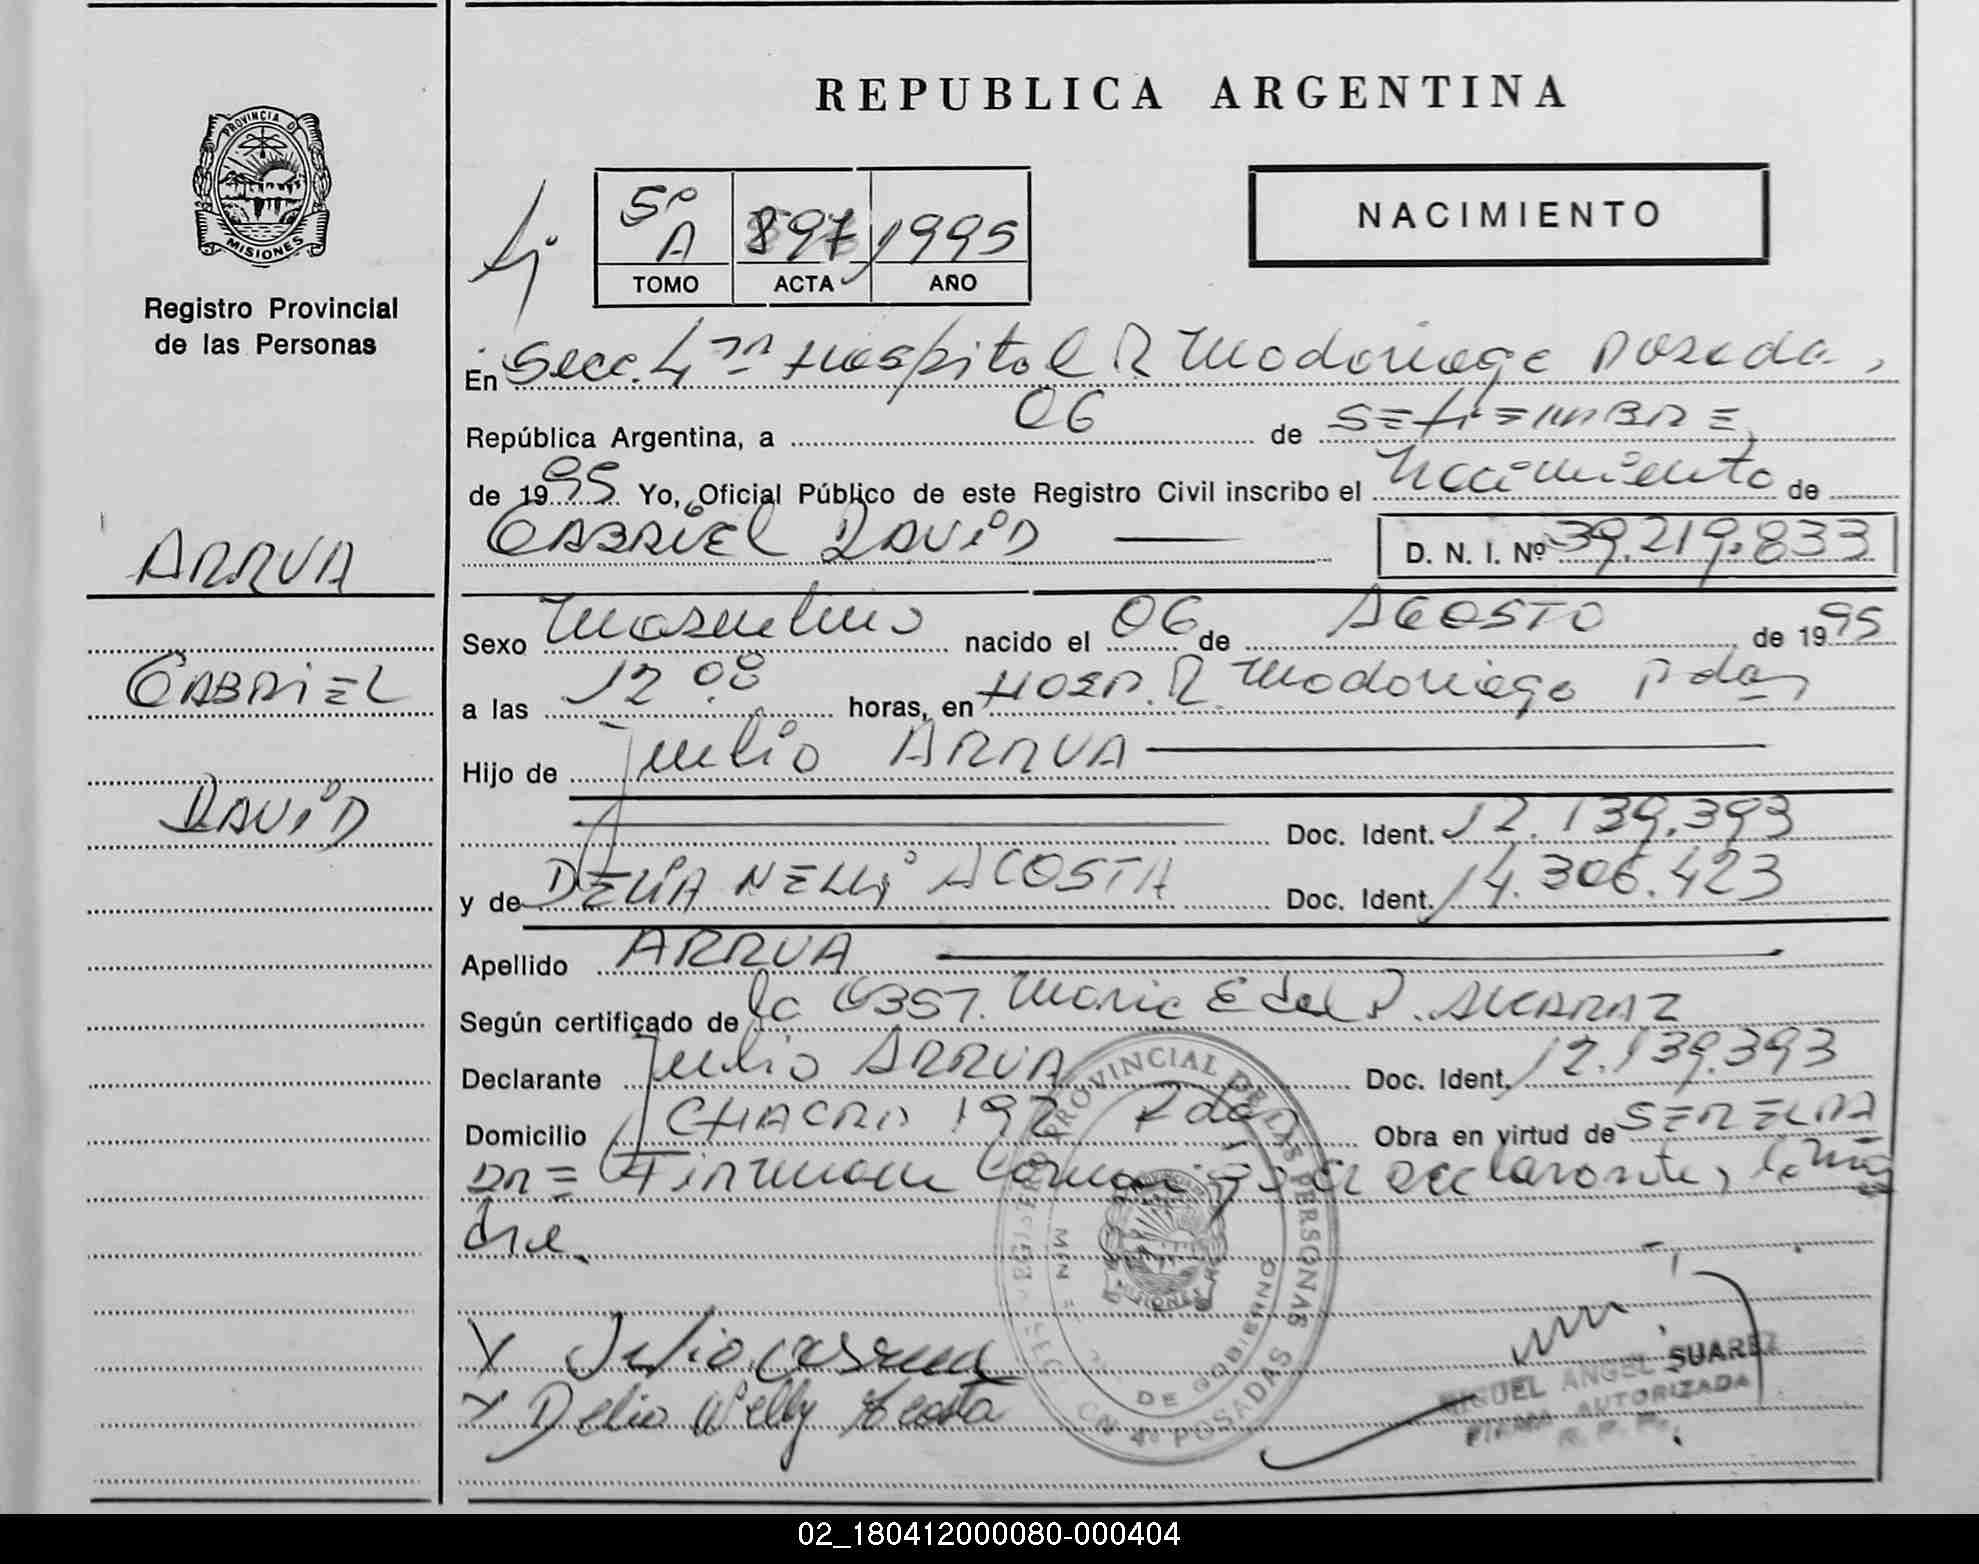 REPUBLICA ARGENTINA
PROVINCIA DE
MISIONES
Registro Provincial
de las Personas
5º
A
897
1995
TOMO
ACTA
AÑO
NACIMIENTO
En Secc. 4ta Hospital R Madariaga Posadas,
República Argentina, a 06 de SETIEMBRE
de 1995 Yo, Oficial Público de este Registro Civil inscribo el Nacimiento de
GABRIEL DAVID D. N. I. Nº 39.219.833
ARRUA
GABRIEL
DAVID
Sexo Masculino nacido el 06 de AGOSTO de 1995
a las 12 08 horas, en HOSP. R Madariaga Pdas
Hijo de Julio ARRUA
Doc. Ident. 12.139.393
y de DELIA NELLY ACOSTA Doc. Ident. 14.306.423
Apellido ARRUA
Según certificado de la OBST. Maria E del P. ALCARAZ
Declarante Julio ARRUA Doc. Ident. 12.139.393
Domicilio CHACRA 192 Pdas Obra en virtud de SER EL PA
DRE Firman conmigo el declarante, la ma
dre.
X Julio arrua
X Delia Nelly Acosta
REGISTRO PROVINCIAL DE LAS PERSONAS
MIN DE GOBIERNO
MISIONES
SECCN 4º POSADAS
MIGUEL ANGEL SUAREZ
FIRMA AUTORIZADA
R. P. P.
02_180412000080-000404